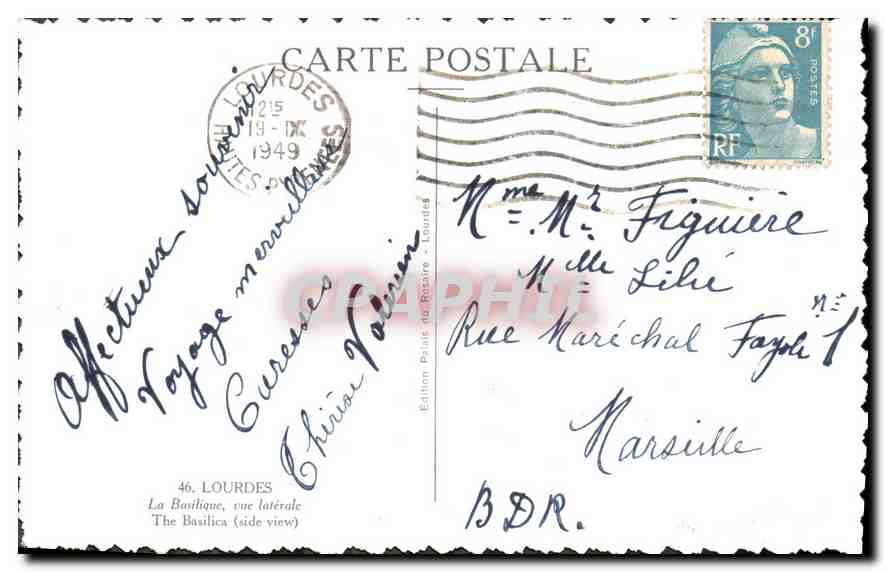 CARTE POSTALE
LOURDES
12 15
19-IX
1949
HTES PYRENEES
8F
POSTES
RF
Affectueux souvenir
Voyage merveilleux
Caresses
Thérèse
Édition Palais du Rosaire - Lourdes
CPAPHIL
Mme Mr Figuière
Mlle Lilié
Rue Maréchal Fayole n° 1
Marseille
BDR.
46. LOURDES
La Basilique, vue latérale
The Basilica (side view)